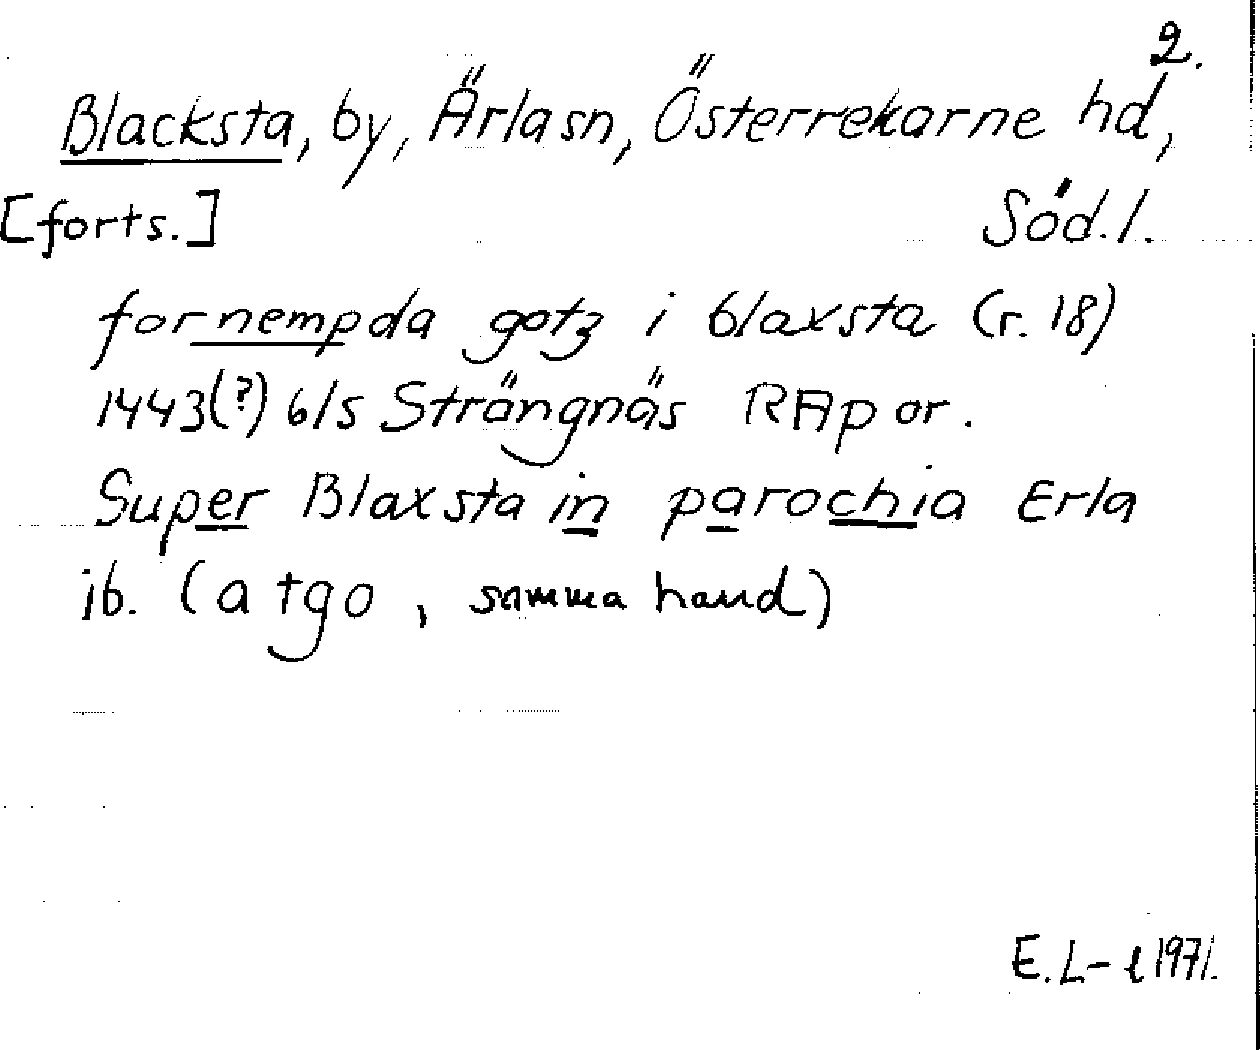 2.
Blacksta, by, Ärla sn, Österrekarne hd,
[forts.] Söd.l.
fornempda gotz i blaxsta (r. 18)
1443(?) 6/5 Strängnäs RAp or.
Super Blaxsta in parochia Erla
ib. (a tgo, samma hand)
E. L-l 1971.